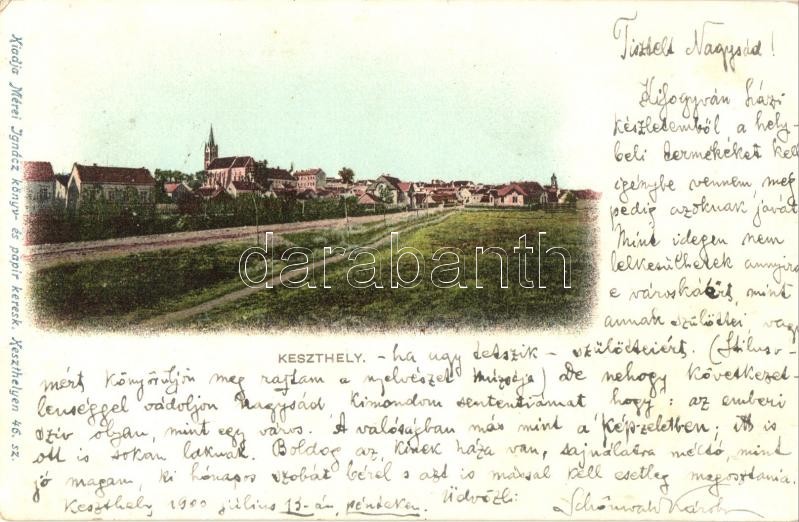 Kiadja Mérei Ignácz könyv- és papir keresk. Keszthelyen 46. sz.
Tisztelt Nagysád!
Kifogyván házi
készletemből a hely-
beli termékeket kell
igénybe vennem, még
pedig azoknak javát.
Mint idegen nem
lelkesülhetek annyira
e városkáért, mint
annak szülöttei, vagy
KESZTHELY.
- ha ugy tetszik - szülötteiért. (Stiluso-
mért könyörüljön meg rajtam a nyelvészet múzsája) De nehogy következet-
lenséggel vádoljon Nagysád kimondom sententiámat hogy: az emberi
sziv olyan, mint egy város. A valóságban más mint a képzeletben; itt is
ott is sokan laknak. Boldog az, kinek háza van, sajnálatra méltó, mint
jó magam, ki hónapos szobát bérel s azt is mással kell esetleg megosztania.
Keszthely 1900 július 13-án, pénteken. Üdvözli
Schönwald Károly
darabanth